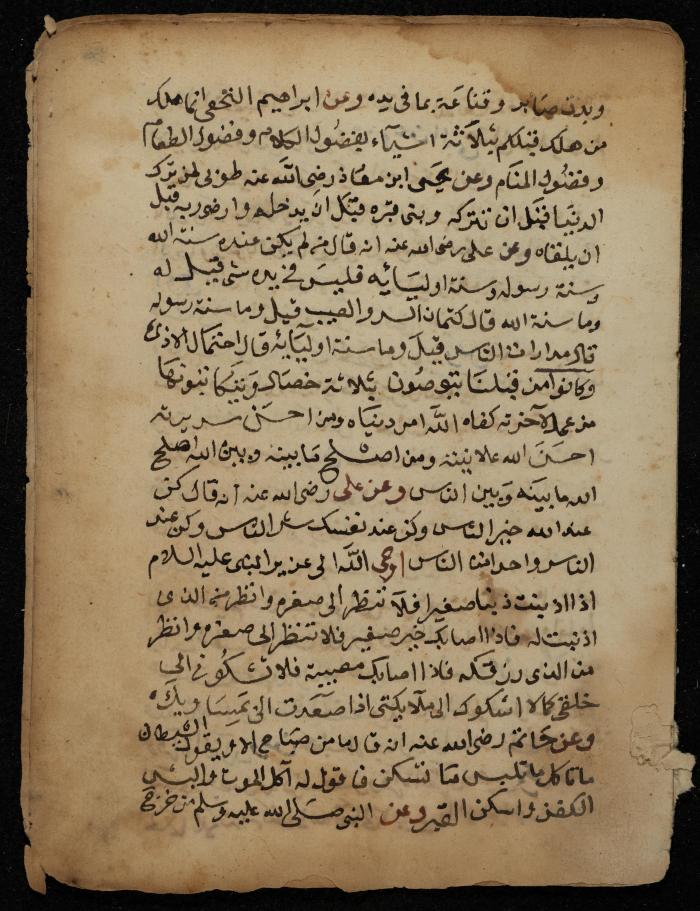 وبدن صابر وقناعة بما فى يده وعن ابراهيم النخعى انما هلك
من هلك قبلكم بثلاثة اشياء بفضول الكلام وفضول الطعام
وفضول المنام وعن يحيى ابن معاذ رضى الله عنه طوبى لمن ترك
الدنيا قبل ان تتركه وبنى قبره قبل ان يدخله وارضى ربه قبل
ان يلقاه وعن على رضى الله عنه انه قال من لم يكن عنده سنة الله
وسنة رسوله وسنة اوليائه فليس فى يده شى قيل له
وما سنة الله قال كتمان السر والعيب قيل وما سنة رسوله
قال مدارات الناس قيل وما سنة اوليائه قال احتمال الاذى
وكانوا من قبلنا يتوصون بثلاثة خصال
من عمل لآخرته كفاه الله امر دنياه ومن احسن سريرته
احسن الله علانيته ومن اصلح ما بينه وبين الله اصلح
الله ما بينه وبين الناس وعن على رضى الله عنه انه قال كن
عند الله خير الناس وكن عند نفسك شر الناس وكن عند
الناس واحدا من الناس اوحى الله الى عزير النبى عليه السلام
اذا اذنبت ذنبا صغيرا فلا تنظر الى صغره وانظر من الذى
اذنبت له فاذا اصابك خير صغير فلا تنظر الى صغره وانظر
من الذى رزقكه فاذا اصابك مصيبة فلا تشكونى الى
خلقى كما لا اشكوك الى ملايكتى اذا صعدت الى مساويك
وعن حاتم رضى الله عنه انه قال ما من صباح الا ويقول الشيطان
ما تاكل ما تلبس ما تسكن فاقول له آكل الموت والبس
الكفن واسكن القبر وعن النبى صلى الله عليه وسلم من خرج